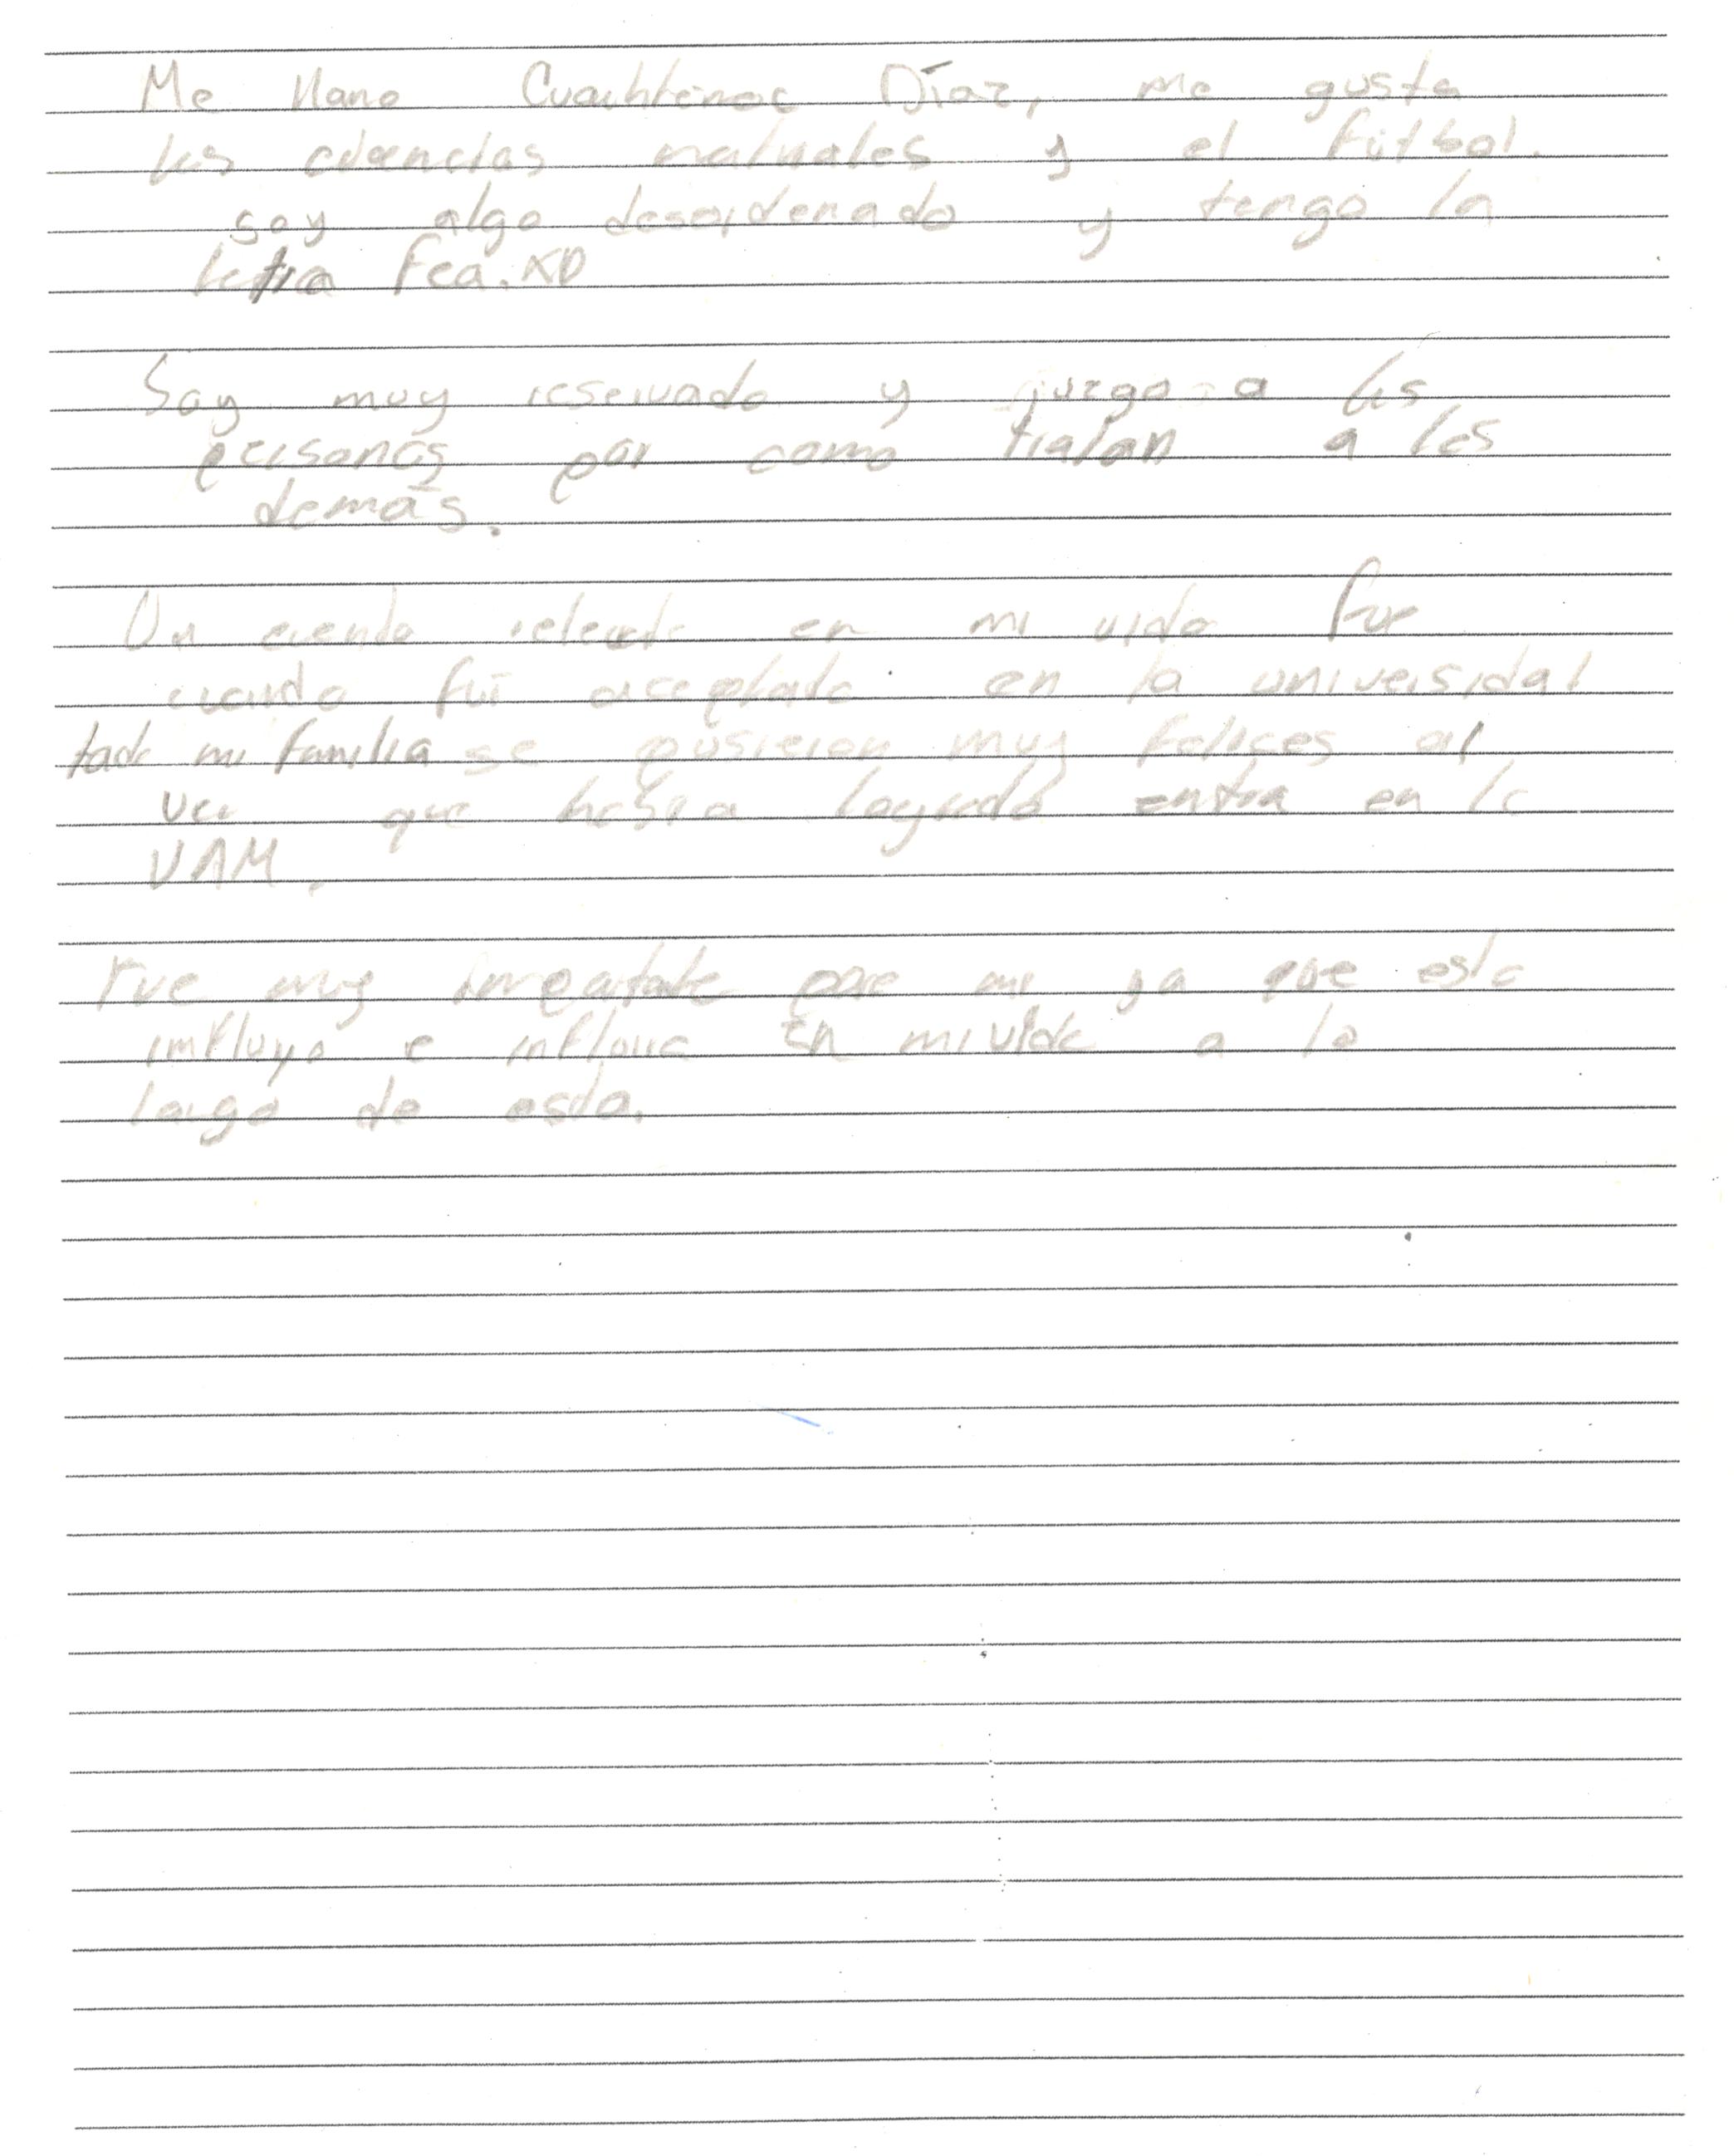 Me llamo Cuauhtémoc Díaz, me gusta
las ciencias naturales y el fútbol.
soy algo desordenado y tengo la
letra fea. XD
Soy muy reservado y juzgo a las
personas por como tratan a los
demás.
Un evento en mi vida fue
cuando fui aceptado en la universidad
toda mi familia se pusieron muy felices al
ver que había logrado entra en la
UAM.
Fue muy importante para mi ya que esto
influyo e influira en mi vida a lo
largo de esta.